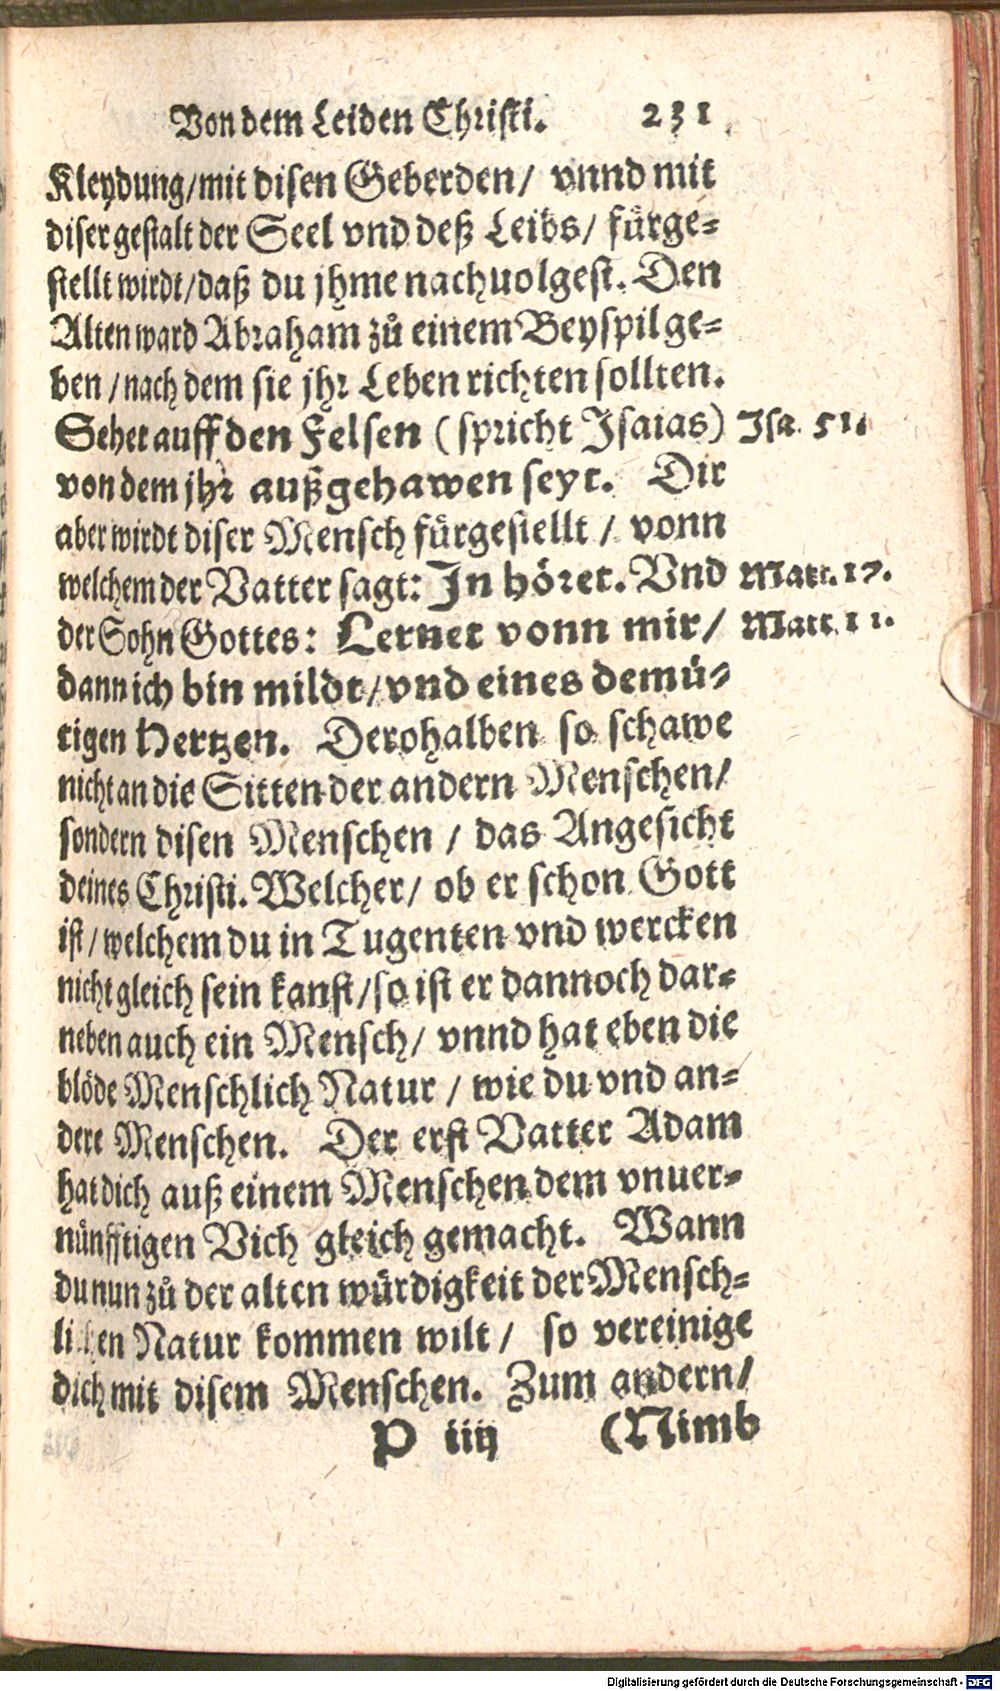 Von dem Leiden Christi. 231
Kleydung/mit disen Geberden/ vnnd mit
diser gestalt der Seel vnd deß Leibs/ fürge-
stellt wirdt/daß du jhme nachuolgest. Den
Alten ward Abraham zů einem Beyspil ge-
ben /nach dem sie jhr Leben richten sollten.
Sehet auff den Felsen (spricht Isaias) Isa. 51.
von dem jhr außgehawen seyt. Dir
aber wirdt diser Mensch fürgestellt / vonn
welchem der Vatter sagt: In höret. Vnd Matt. 17.
der Sohn Gottes: Lernet vonn mir/ Matt. 11.
dann ich bin mildt/vnd eines demü-
tigen Hertzen. Derohalben so schawe
nicht an die Sitten der andern Menschen/
sondern disen Menschen / das Angesicht
deines Christi. Welcher/ ob er schon Gott
ist/welchem du in Tugenten vnd wercken
nicht gleich sein kanst/so ist er dannoch dar-
neben auch ein Mensch/ vnnd hat eben die
blöde Menschlich Natur / wie du vnd an-
dere Menschen. Der erst Vatter Adam
hat dich auß einem Menschen dem vnuer-
nünfftigen Vich gleich gemacht. Wann
du nun zů der alten würdigkeit der Mensch-
lichen Natur kommen wilt/ so vereinige
dich mit disem Menschen. Zum andern/
P iiij (Nimb
Digitalisierung gefördert durch die Deutsche Forschungsgemeinschaft - DFG